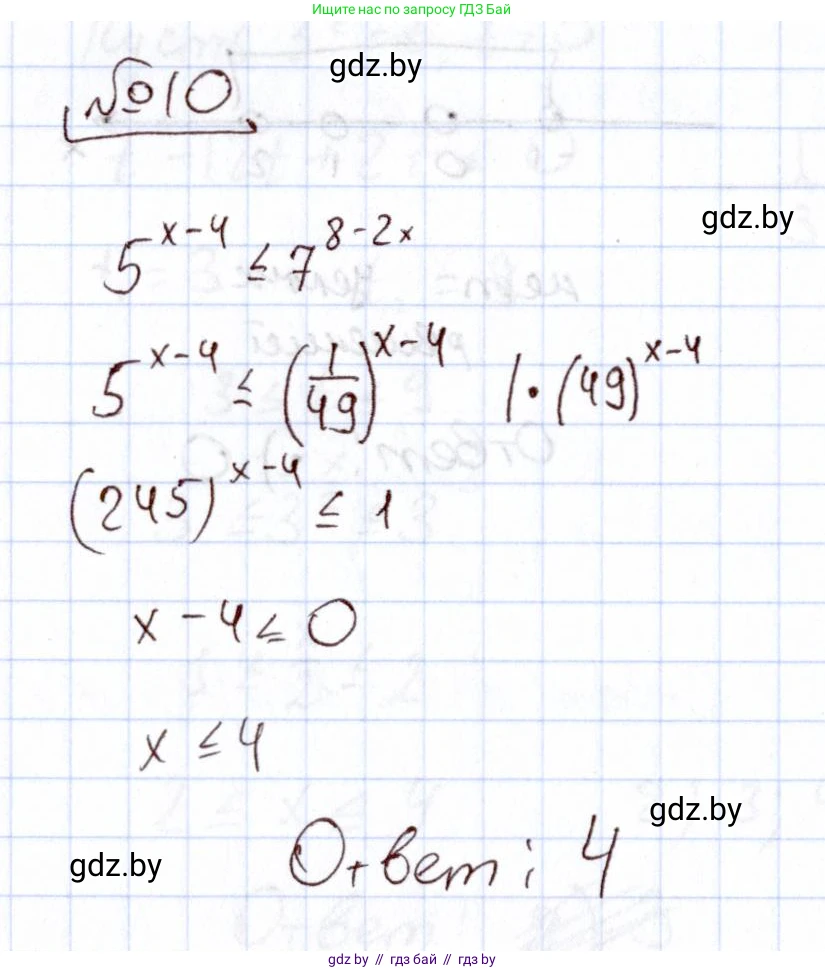 Ищите нас по запросу ГДЗ Бай
gdz.by
№10
gdz.by
5^{x-4} ≤ 7^{8-2x}
5^{x-4} ≤ (1/49)^{x-4} | · (49)^{x-4}
(245)^{x-4} ≤ 1
x - 4 ≤ 0
x ≤ 4
gdz.by
Ответ: 4
gdz.by
gdz.by // гдз бай // гдз.by